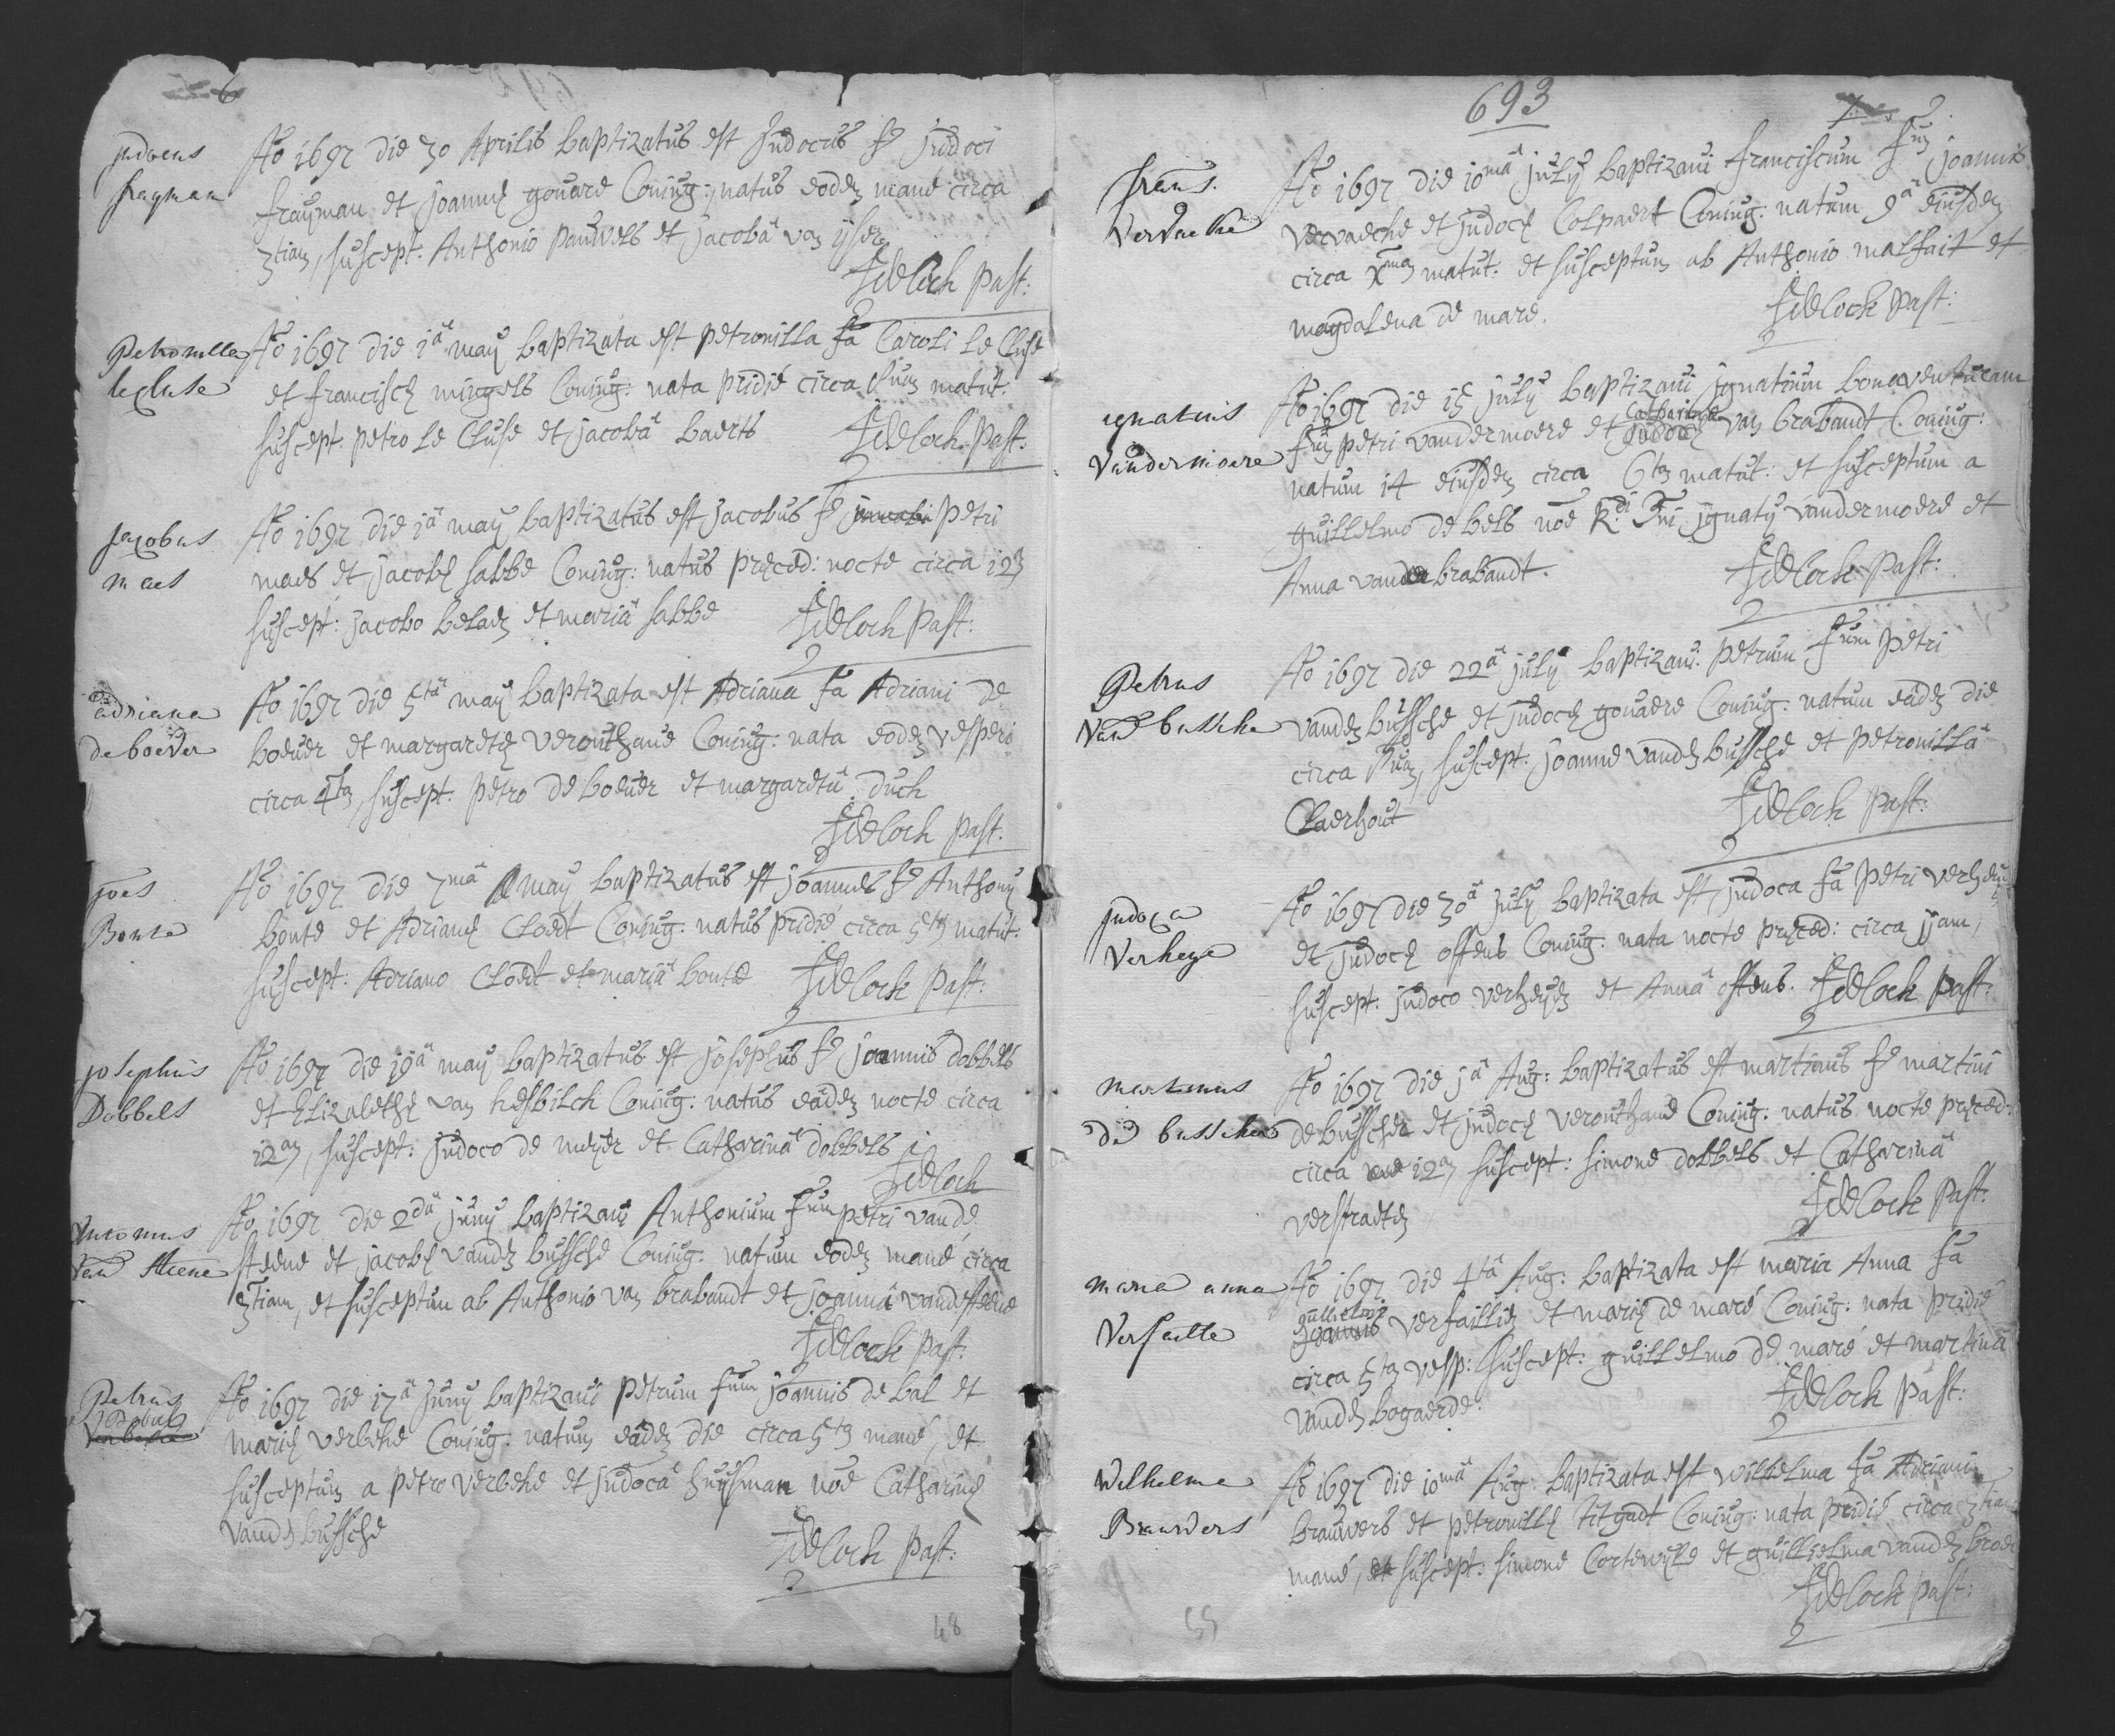 6
judocus
frayman
Ao 1697 die 30 Aprilis baptizatus est Judocus fs Judoci
frayman et joannę gouare Coniug: natus eodem mane circa
3tiam, suscept. Anthonio pauwels et jacobâ van ysere
past:
Petronilla
lecluse
Ao 1697 die 1â may baptizata est petronilla fa Caroli le Cluse
et franciscę mingels Coniug: nata pridie circa matut:
suscept. petro le Cluse et jacobâ baerts
past:
jacobus
maes
Ao 1697 die jâ may baptizatus est jacobus fs petri
maes et jacobę sabbe Coniug: natus pręced: nocte circa 12am
suscept: jacobo belaen et mariâ sabbe
past:
adriana
de boever
Ao 1697 die 5tâ may baptizata est Adriana fa Adriani de
boever et margaretę veronthane Coniug: nata eodem vesperi
circa 4tam, suscept. petro de boever et margaretâ duck
past:
joes
Bonte
Ao 1697 die 7mâ may baptizatus est joannes fs Anthony
bonte et Adrianę Cloet Coniug: natus pridie circa 5tam matut:
suscept: Adriano Cloet et mariâ bonte
past:
josephus
Dobbels
Ao 1697 die 19â may baptizatus est josephus fs joannis dobbels
et Elizabethę van hesbilck Coniug: natus eâdem nocte circa
12am, suscept: judoco de meyer et Catharinâ dobbels
Antonius
vand Steene
Ao 1697 die 2dâ juny baptizavi Anthonium fum petri vande
steene et jacobę vanden bussche Coniug: natum eodem mane circa
3tiam, et susceptum ab Anthonio van brabandt et joannâ vandesteene
past:
Petrus
debal
Ao 1697 die 17â Juny baptizavi petrum fum joannis de bal et
marię verbeke Coniug: natum eâdem die circa 5tam mane, et
susceptum a petro verbeke et judocâ huysman noe Catharinę
vanden bussche
past:
48
693
frans.
Vervacke
Ao 1697 die 10mâ july baptizavi franciscum fum joannis
vervaecke et judocę Colpaert Coniug: natum 9â eiusdem
circa Xmam matut: et susceptum ab Anthonio malfait et
magdalena de mare.
past:
ignatius
Vandermoere
Ao 1697 die 15 july baptizavi ignatium bonaventuram
Catharinę
fum petri vandermoere et judocę van brabandt Coniug:
natum 14 eiusdem circa 6tam matut: et susceptum a
guillelmo de bels noe Rdi Dni ignaty vandermoere et
Anna van brabandt.
past:
Petrus
Vand bussche
Ao 1697 die 22â july baptizavi petrum fum petri
vanden bussche et judocę gouaere Coniug: natum eâdem die
circa suscept. joanne vanden bussche et petronillâ
Claerhout
past:
judoca
Verheye
Ao 1697 die 30â July baptizata est judoca fa petri verheyen
et judocę ostens Coniug: nata nocte pręced: circa jjam,
suscept. judoco verheyen et Annâ ostens.
past:
Martinus
de busscher
Ao 1697 die jâ Aug: baptizatus est martinus fs martini
de busscher et judocę veronthane Coniug: natus nocte pręced:
circa 12am suscept: simone dobbels et Catharinâ
verstraeten
past:
maria anna
Versaille
Ao 1697 die 4tâ Aug: baptizata est maria Anna fa
guillielmi
joannis versaillie et marię de mare Coniug: nata pridie
circa 5tam vesp: suscept: guillelmo de mare et martinâ
vanden bogaerde.
past:
Wilhelma
Brauwers
Ao 1697 die 10mâ Aug: baptizata est wilhelma fa Adriani
brauwers et petronillę titgadt Coniug: nata pridie circa 3tiam
mane, et suscept: simone Cortewyle et guillielma vanden broe
past:
55